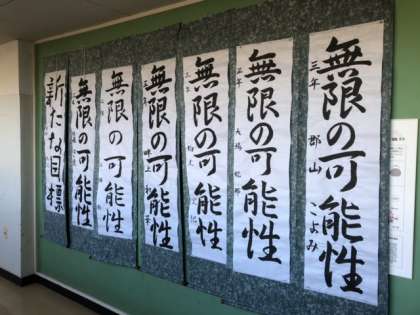 無限の可能性
三年 郡山 こよみ
無限の可能性
無限の可能性
無限の可能性
無限の可能性
無限の可能性
新たな目標